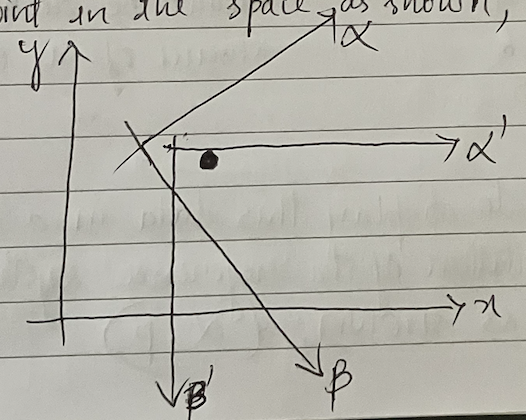 point in the space as shown,
y
α
α'
x
β'
β